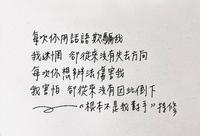 每次你用話語欺騙我
我迷惘 卻從來沒有失去方向
每次你想辦法傷害我
我害怕 卻從來沒有因此倒下
～"根本不是我對手"接修